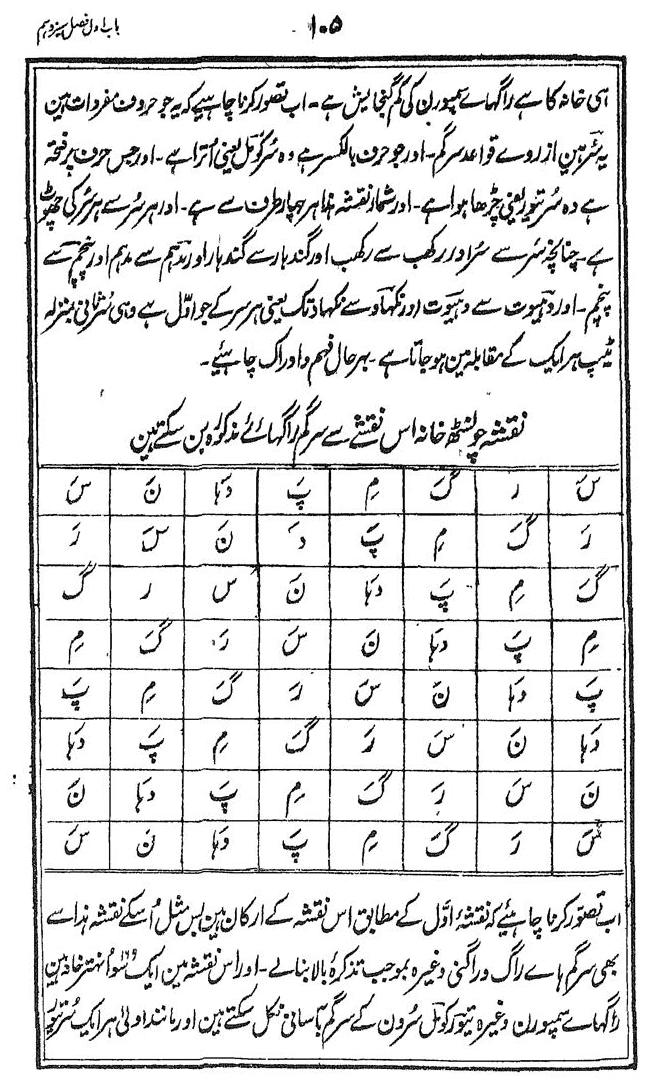 ۱۰۵ باب اول فصل سیزدہم
ہی خانہ کا ہے راگہاے سمپورن کی گم گنجایش ہے۔ اب تصور کرنا چاہیے کہ یہ جو حروف مفردات ہین
یہ سُر ہین از روے قواعد سرگم۔ اور جو حرف بالکسر ہے وہ سُر کومل یعنی اُترا ہے۔ اور جس حرف پر فتحہ
ہے وہ سُر تیور یعنی چڑھا ہوا ہے۔ اور شمار نقشہ ہذا ہر چہار طرف سے ہے۔ اور ہر سُر سے ہر سُر کی چھوٹ
ہے۔ چنانچہ سُر سے سُر اور رکھب سے رکھب اور گندہار سے گندہار اور مدہم سے مدہم اور پنچم سے
پنچم۔ اور دہیوت سے دہیوت اور نکھاد سے نکھاد تک یعنی ہر سر کے جو اوّل ہے وہی سُر ثانی بمنزلہ
ٹیپ ہر ایک کے مقابلہ مین ہو جاتا ہے۔ بہرحال فہم و ادراک چاہیئے۔
نقشہ چونسٹھ خانہ اس نقشے سے سرگم راگہائے مذکورہ بن سکتے ہین
سَ ر گَ مِ پَ دہا نَ سَ
رَ گَ مِ پَ دَ نَ سَ رَ
گَ مِ پَ دہا نَ س ر گَ
مِ پَ دہا نَ سَ رَ گَ مِ
پَ دہا نَ سَ رَ گَ مِ پَ
دہا نَ سَ رَ گَ مِ پَ دہا
نَ سَ رَ گَ مِ پَ دہا نَ
سَ رَ گَ مِ پَ دہا نَ سَ
اب تصوّر کرنا چاہیئے کہ نقشۂ اوّل کے مطابق اس نقشہ کے ارکان ہین بس مثل اُسکے نقشہ ہذا سے
بھی سرگم ہاے راگ و راگنی وغیرہ بموجب تذکرۂ بالا بنالے۔ اور اس نقشہ مین ایک سَو اُنہتر خانہ ہین
راگہاے سمپورن وغیرہ تیور کومل سرون کے سرگم بآسانی نکل سکتے ہین اور مانند اولیٰ ہر ایک سُر تیور